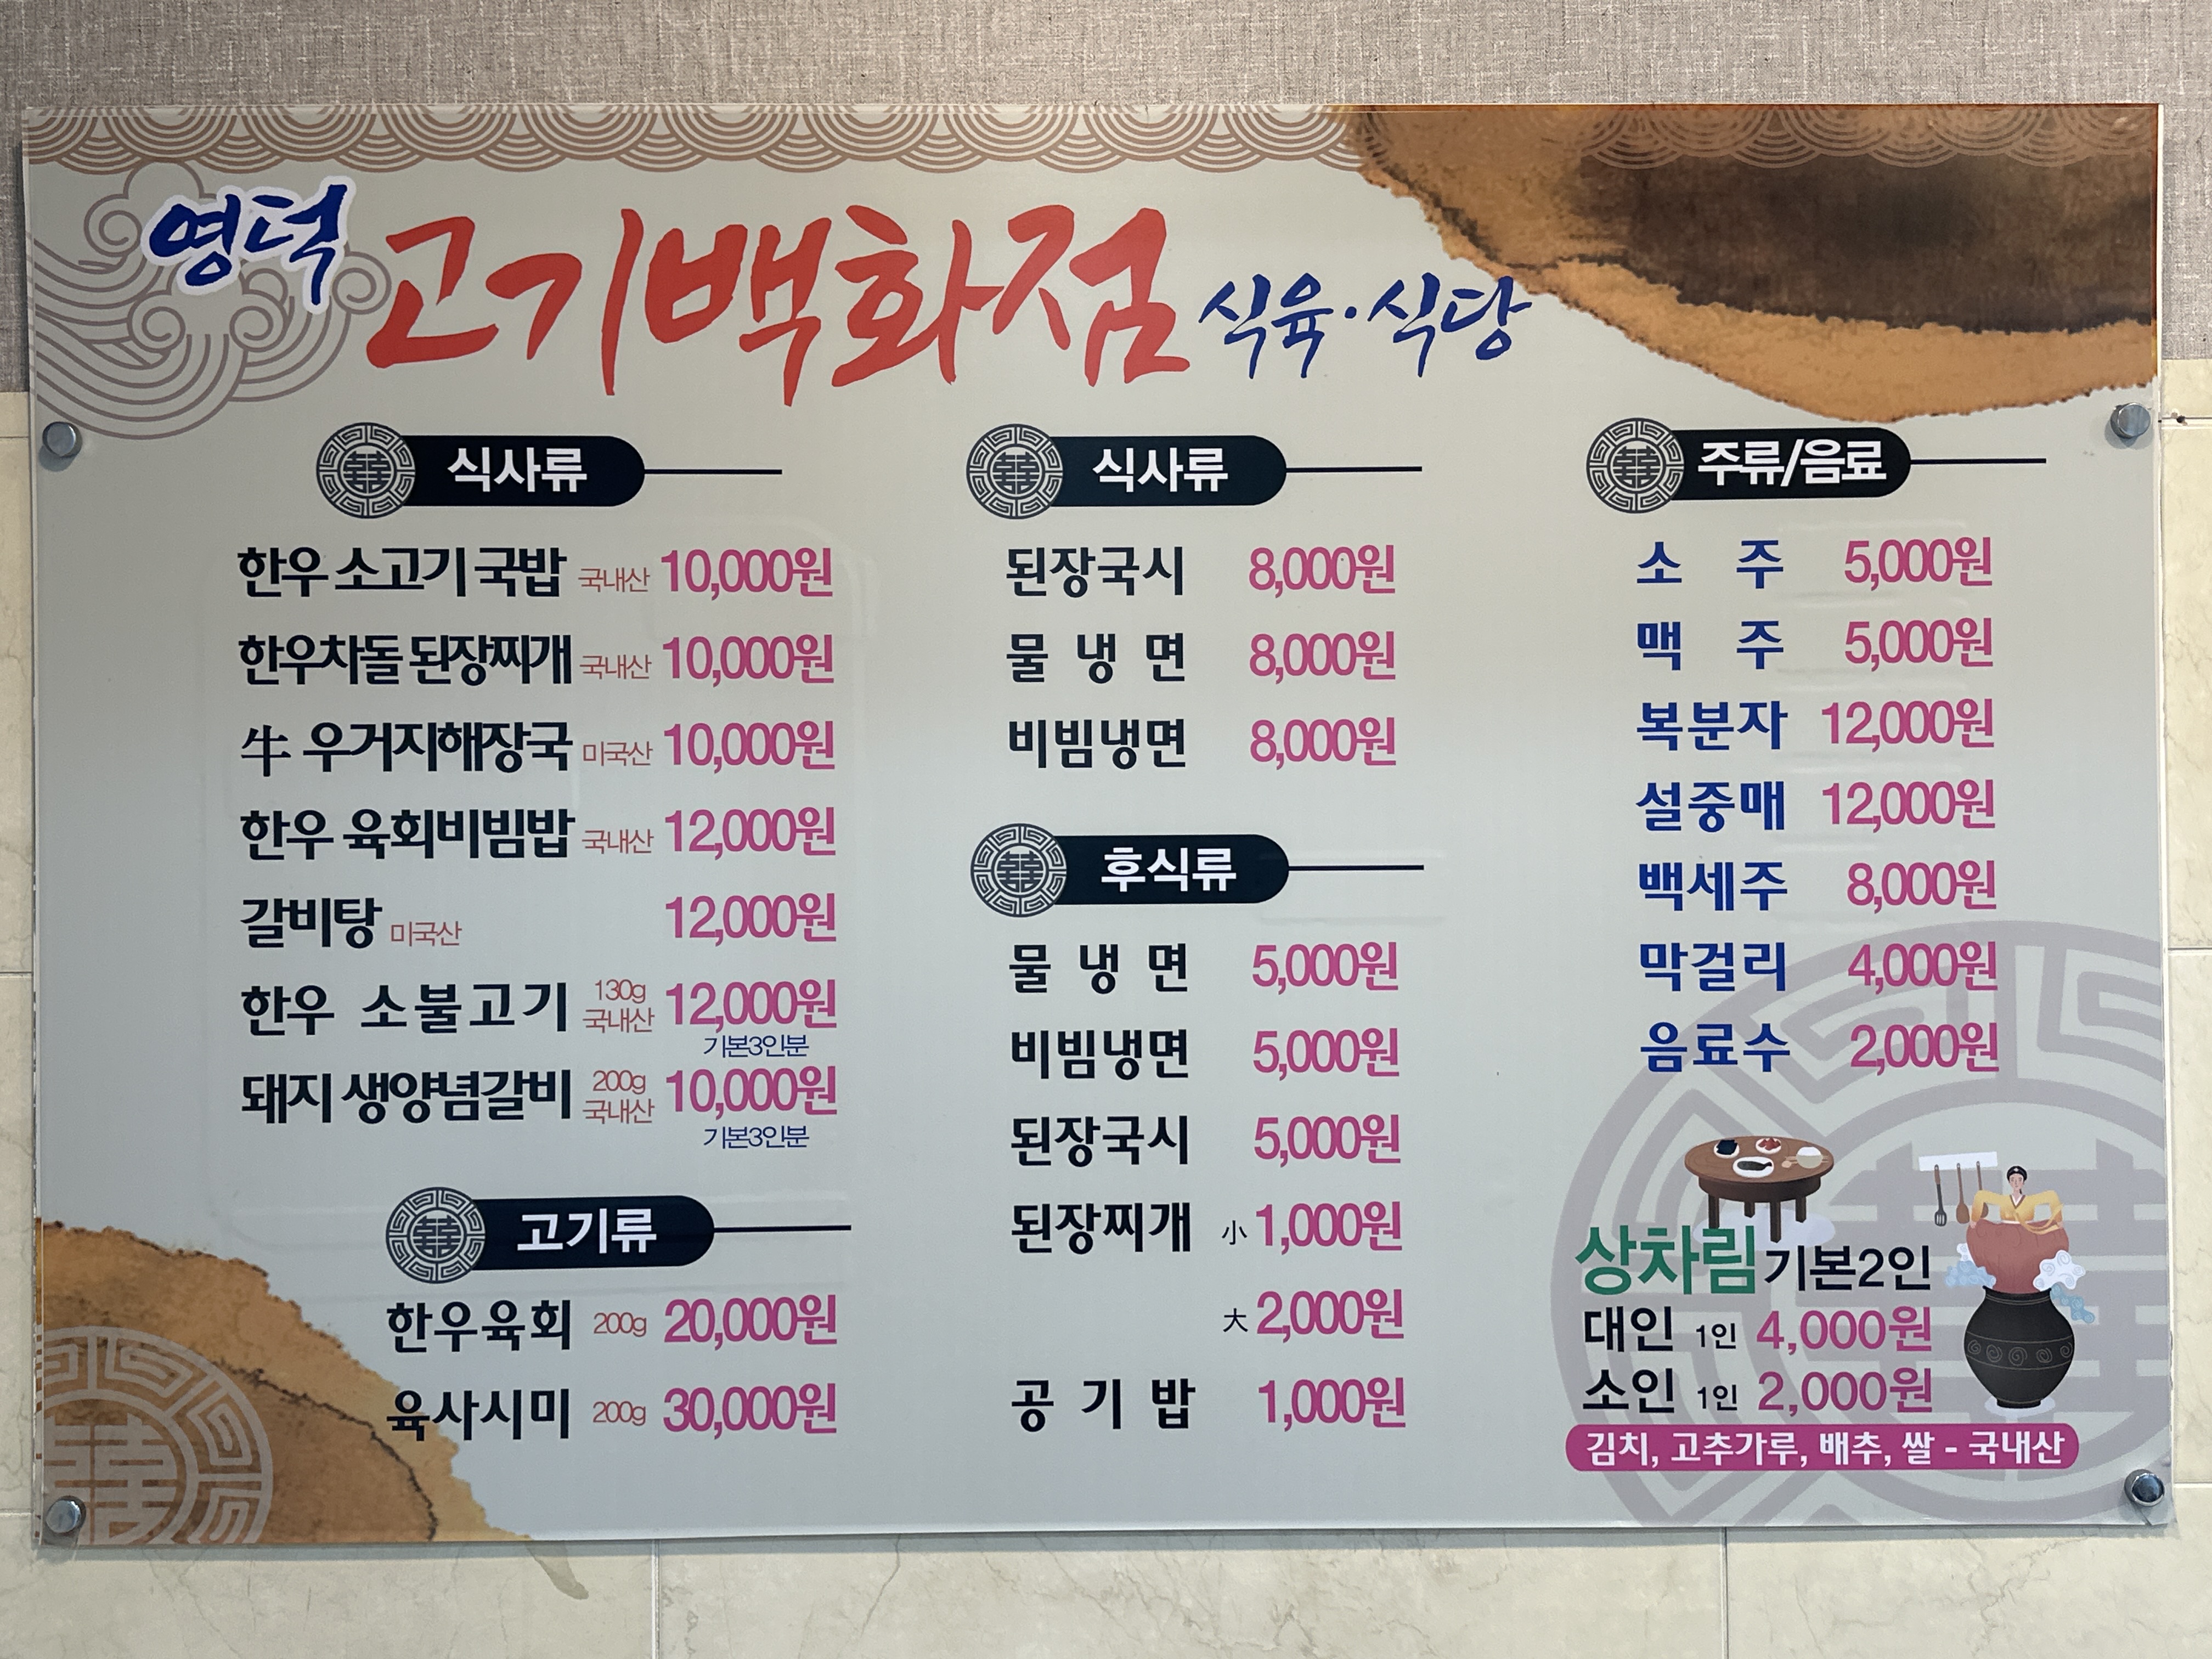 영덕 고기백화점 식육·식당
식사류
한우 소고기 국밥 국내산 10,000원
한우차돌 된장찌개 국내산 10,000원
牛 우거지해장국 미국산 10,000원
한우 육회비빔밥 국내산 12,000원
갈비탕 미국산 12,000원
한우 소불고기 130g 국내산 12,000원
기본3인분
돼지 생양념갈비 200g 국내산 10,000원
기본3인분
고기류
한우육회 200g 20,000원
육사시미 200g 30,000원
식사류
된장국시 8,000원
물 냉 면 8,000원
비빔냉면 8,000원
후식류
물 냉 면 5,000원
비빔냉면 5,000원
된장국시 5,000원
된장찌개 小 1,000원
大 2,000원
공 기 밥 1,000원
주류/음료
소 주 5,000원
맥 주 5,000원
복분자 12,000원
설중매 12,000원
백세주 8,000원
막걸리 4,000원
음료수 2,000원
상차림 기본2인
대인 1인 4,000원
소인 1인 2,000원
김치, 고추가루, 배추, 쌀 - 국내산